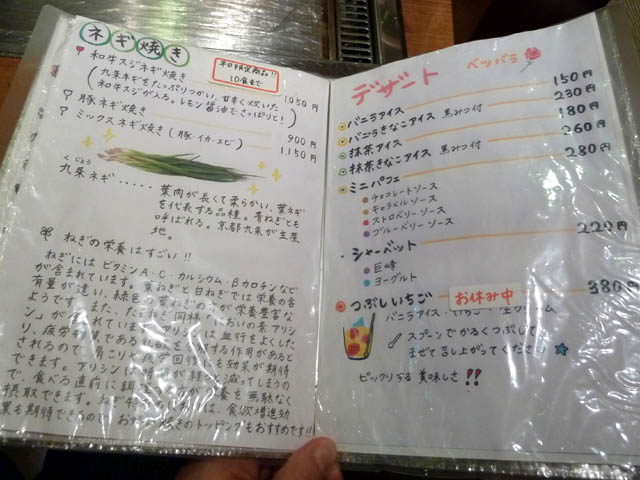 ネギ焼き
平日限定商品!!
10食まで
和牛スジネギ焼き 1050円
(九条ネギをたっぷりつかい、甘辛く炊いた
和牛スジが入る。レモン醤油でさっぱりと!)
豚ネギ焼き 900円
ミックスネギ焼き(豚・イカ・エビ) 1,150円
くじょう
九条ネギ.....
葉肉が長くて柔らかい、葉ネギ
を代表する品種。青ねぎとも
呼ばれる。京都九条が生産
地。
ねぎの栄養はすごい!!
ねぎには ビタミンA・C・カルシウム・βカロチンなど
が含まれています。葉ねぎと白ねぎでは栄養の含
有量が違い、緑色の葉ねぎの方が栄養豊富な
ようです。また、たまねぎ同様、においの素アリシ
ン」が含まれています。アリシンは血行をよくした
り、疲労物質である
する作用があると
されるので、肩こりや疲労回復にも効果が期待
できます。アリシンは
減ってしまうの
で、食べる直前に
栄養を無駄なく
摂取できます。ねぎ
は、食欲増進効
果も期待できるので、お
焼きのトッピングもおすすめです!!
デザート
ベツバラ
バニラアイス 150円
バニラきなこアイス 黒みつ付 230円
抹茶アイス 180円
抹茶きなこアイス 黒みつ付 260円
ミニパフェ 280円
チョコレートソース
キャラメルソース
ストロベリーソース
ブルーベリーソース
シャーベット 220円
巨峰
ヨーグルト
つぶしいちご お休み中 380円
バニラアイス・いちご・生クリーム
スプーンでかるくつぶして
まぜて召し上がってください
ビックリする美味しさ!!